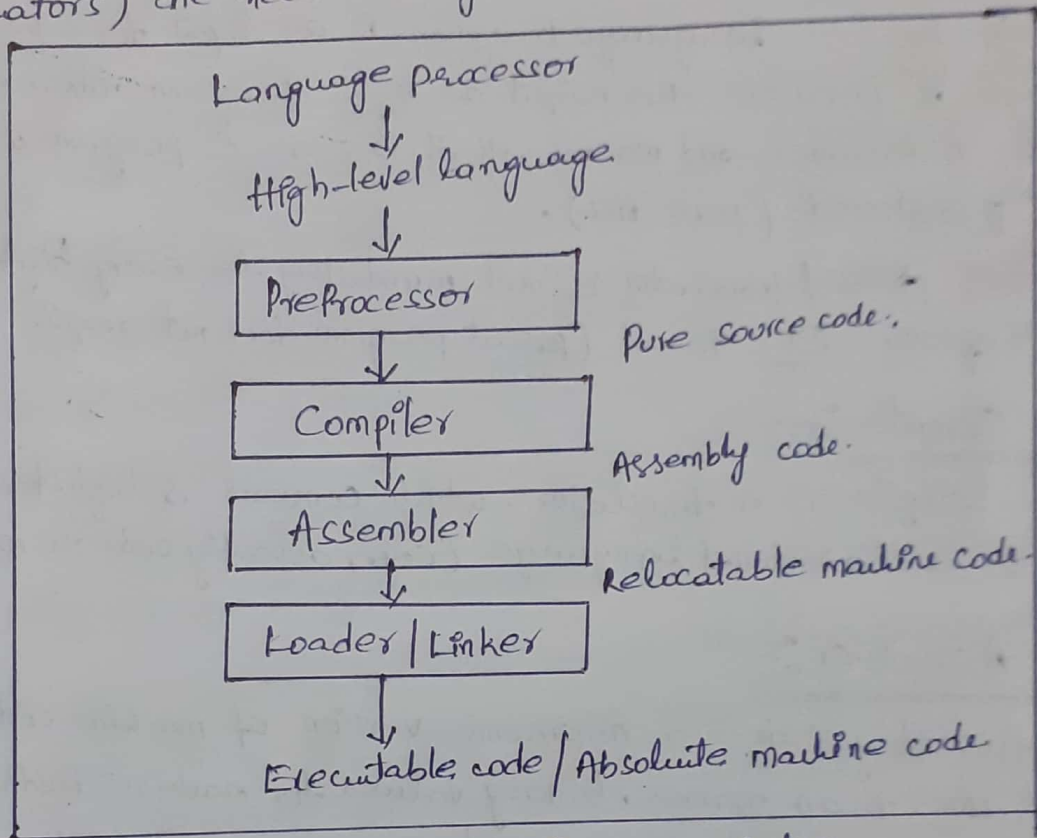 ators)
Language processor
High-level language
PreProcessor
Pure source code.
Compiler
Assembly code.
Assembler
Relocatable machine code.
Loader | Linker
Executable code / Absolute machine code